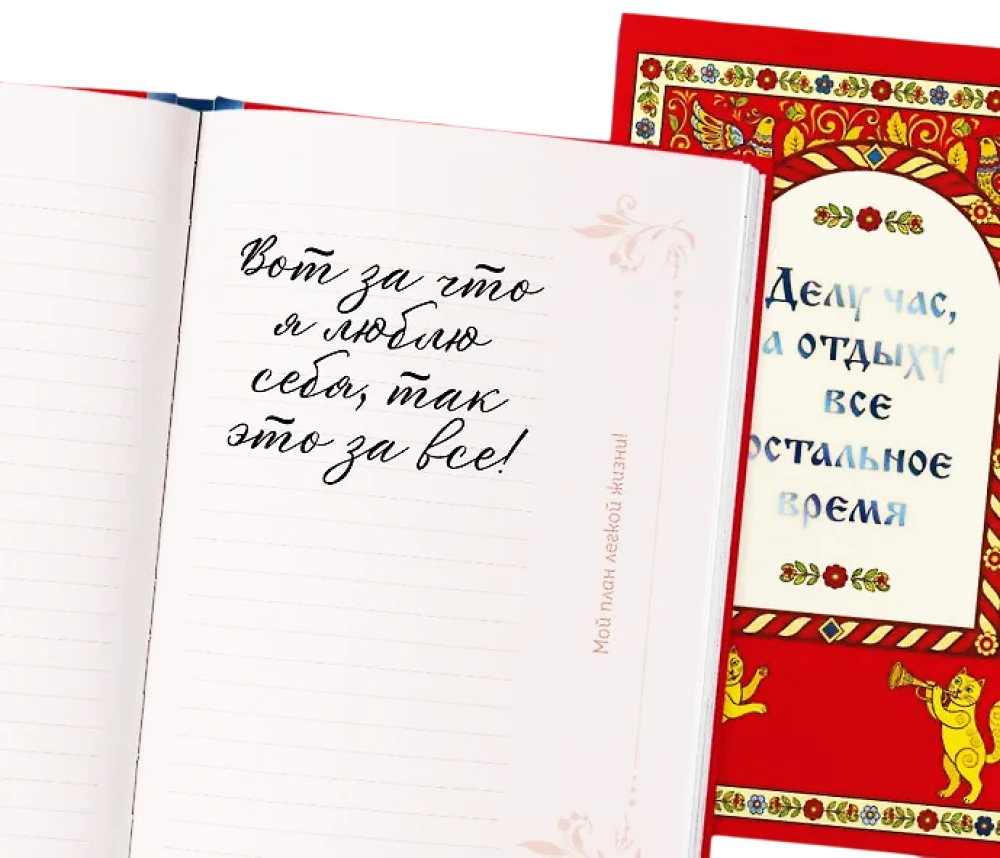 Вот за что
я люблю
себя, так
это за все!
Мой план легкой жизни!
Делу час,
а отдыху
все
остальное
время